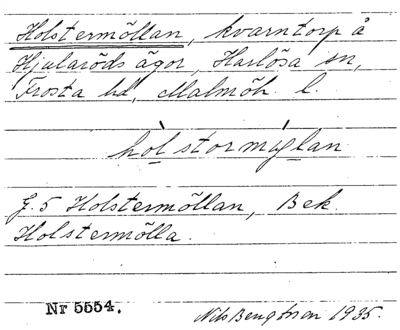 Holstermöllan, kvarntorp å
Hjularöds ägor, Harlösa sn,
Frosta hd, Malmöh. l.
hòlstormy̍glan
G. 5 Holstermöllan, Bek.
Holstermölla.
Nr 5554.
Nils Bengtsson 1935.